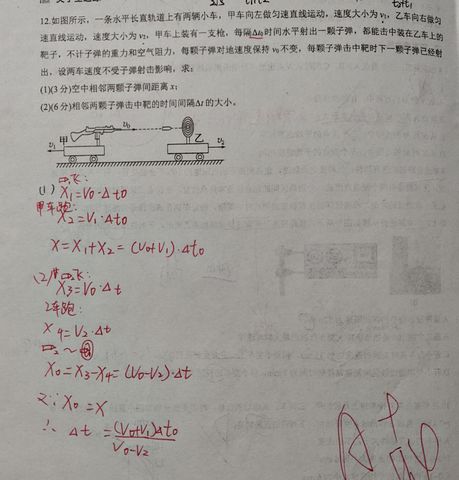 12.如图所示，一条水平长直轨道上有两辆小车，甲车向左做匀速直线运动，速度大小为v₁，乙车向右做匀
速直线运动，速度大小为v₂，甲车上装有一支枪，每隔Δt₀时间水平射出一颗子弹，都能击中装在乙车上的
靶子，不计子弹的重力和空气阻力，每颗子弹对地速度保持v₀不变，每颗子弹击中靶时下一颗子弹已经射
出，设两车速度不受子弹射击影响，求：
(1)(3分)空中相邻两颗子弹间距离x；
(2)(6分)相邻两颗子弹击中靶的时间间隔Δt的大小。
甲 v₀ 乙
v₁ v₂
(1) 飞:
X₁=V₀·Δt₀
甲车跑:
X₂=V₁·Δt₀
X=X₁+X₂=(V₀+V₁)·Δt₀
(2) 飞:
X₃=V₀·Δt
乙车跑:
X₄=V₂·Δt
X₀=X₃-X₄=(V₀-V₂)·Δt
又∵X₀=X
∴Δt=(V₀+V₁)Δt₀
V₀-V₂